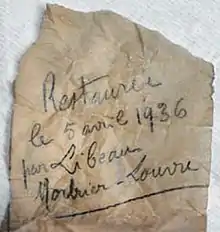 Restaurée
le 5 avril 1936
par Libeau
Marbrier - Louvre